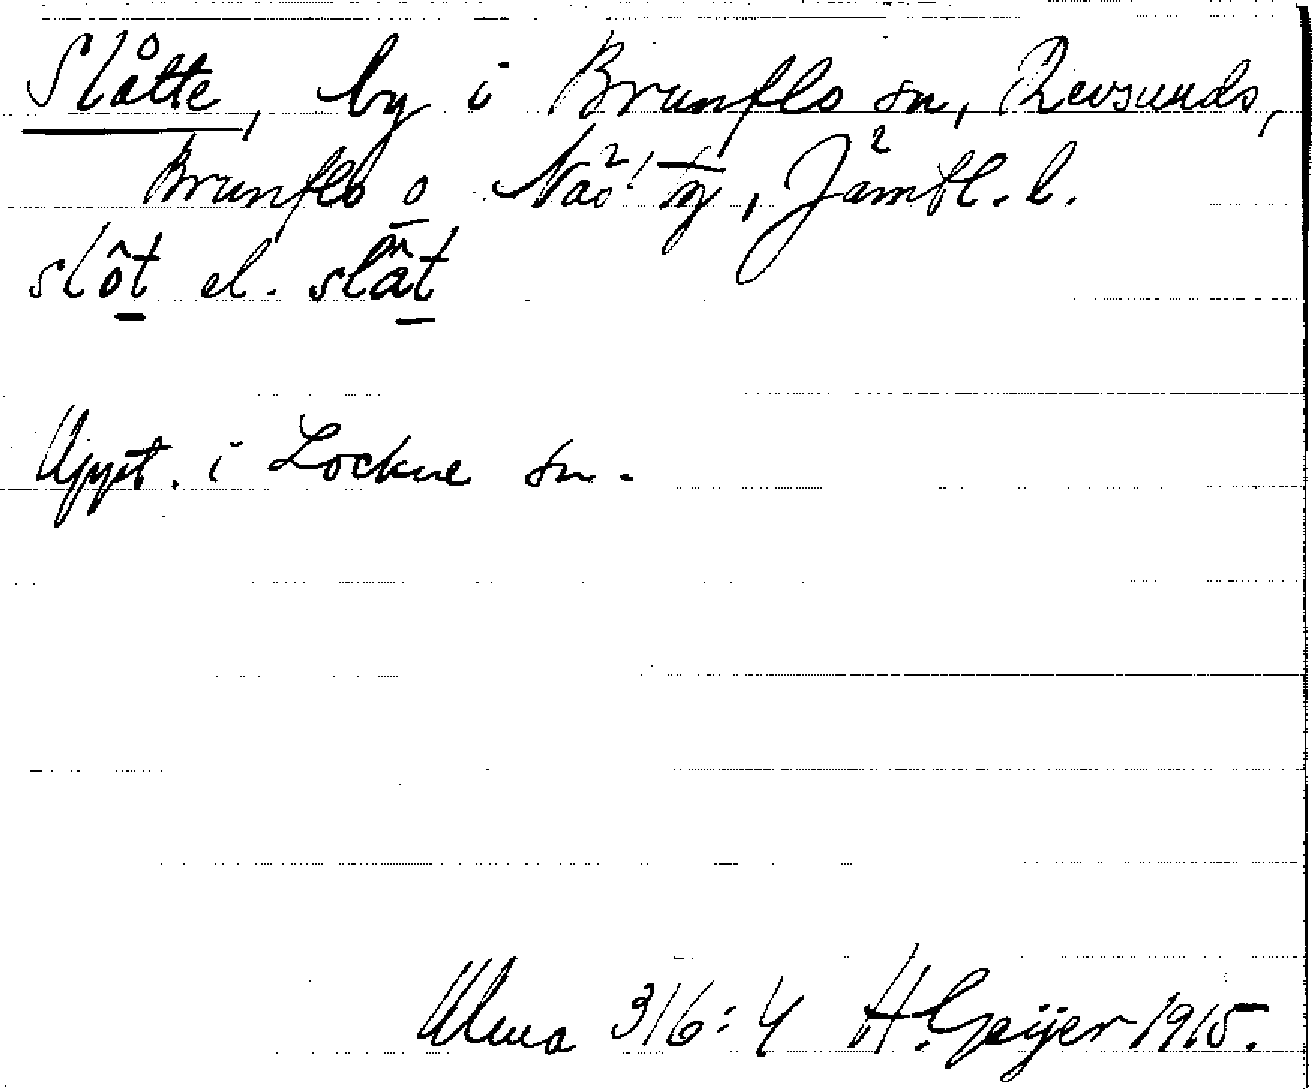 Slåtte, by i Brunflo sn, Revsunds,
Brunflo o Näs tg, Jämtl. l.
slôt el. slât
Uppt. i Lockne sn.
Ulma 316:4 H. Geijer 1915.